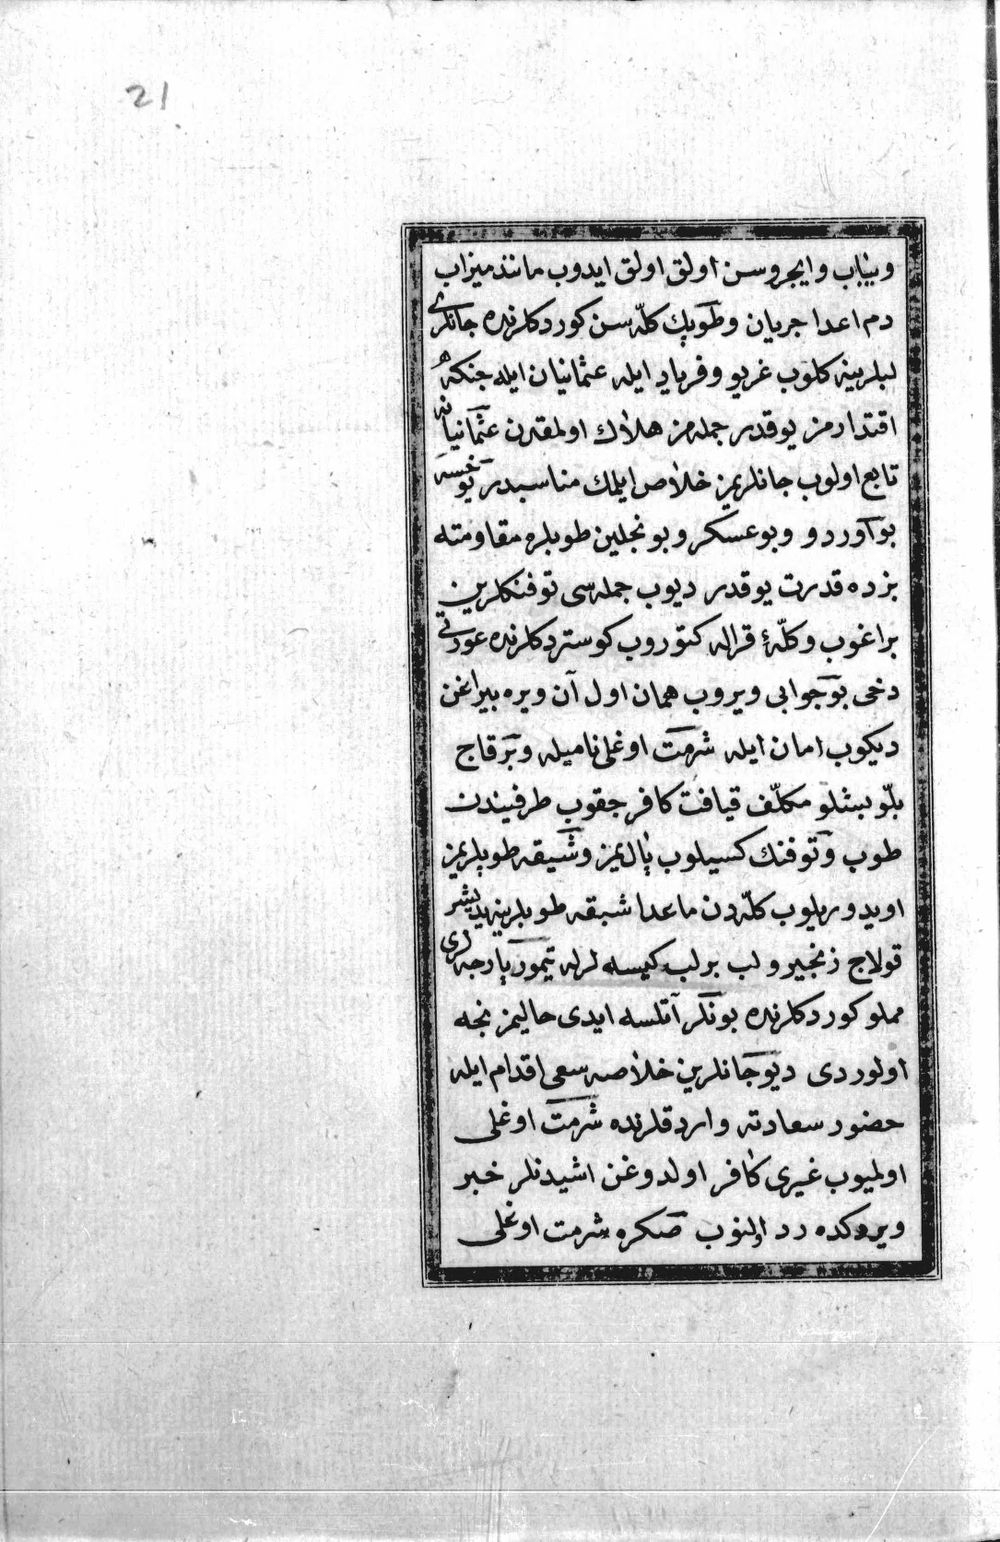 21
وبیتاب وایچروسن اولق اولق ایدوب مانند میزاب
دم اعدا جریان وطوپك كلّه سن كوردكلرنده جانلری
لبلرینه كلوب غریو وفریاد ایله عثمانیان ایله جنكه
اقتدارمز یوقدر جمله مز هلاك اولمقدن عثمانیانه
تابع اولوب جانلریمز خلاص ایلمك مناسبدر یوخسه
بو اوردو وبو عسكر وبونجلین طوبلره مقاومته
بزده قدرت یوقدر دیوب جمله سی توفنكلرین
براغوب وكلّهٔ قراله كتوروب كوستردكلرنده عورتی
دخی بو جوابی ویروب همان اول آن ویره بیراغن
دیكوب امان ایله شرمت اوغلی نامیله وبر قاچ
بللو مكلّف قیافت كافر چقوب طرفیندن
طوب وتوفنك كسیلوب بال یمز وشیقه طوپلریمز
اویدوریلوب كلّه دن ماعدا شبقه طوبلرینه یدیشر
قولاج زنجیر و لب برلب كیسه لرله تیمور پارچه لری
مملو كوردكلرنده بونلر آتلسه ایدی حالیمز نجه
اولوردی دیو جانلرین خلاصه سعی اقدام ایله
حضور سعادته واردقلرنده شرمت اوغلی
اولمیوب غیری كافر اولدوغن اشیدنلر خبر
ویردكده رد اولنوب صكره شرمت اوغلی